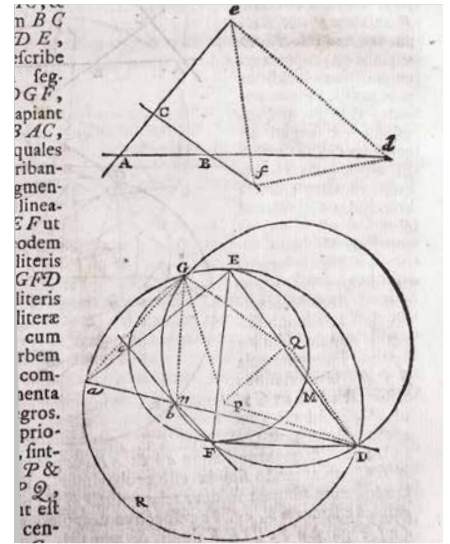 n B C
D E,
escribe
seg-
DGF,
apiant
BAC,
quales
riban-
gmen-
linea-
EF ut
eodem
literis
GFD
literis
literæ
cum
rbem
com-
menta
egros.
prio-
, sint-
P &
PQ,
ut est
cen-
e
C
A B f d
G E
c Q
a n
b P M
F D
R